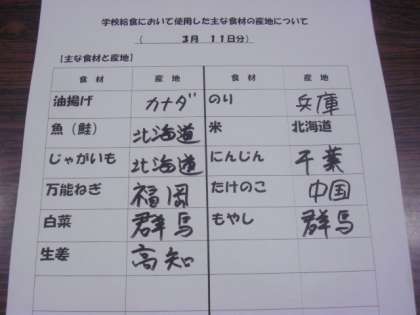 学校給食において使用した主な食材の産地について
( 3月 11日分)
【主な食材と産地】
食材 産地 食材 産地
油揚げ カナダ のり 兵庫
魚(鮭) 北海道 米 北海道
じゃがいも 北海道 にんじん 千葉
万能ねぎ 福岡 たけのこ 中国
白菜 群馬 もやし 群馬
生姜 高知